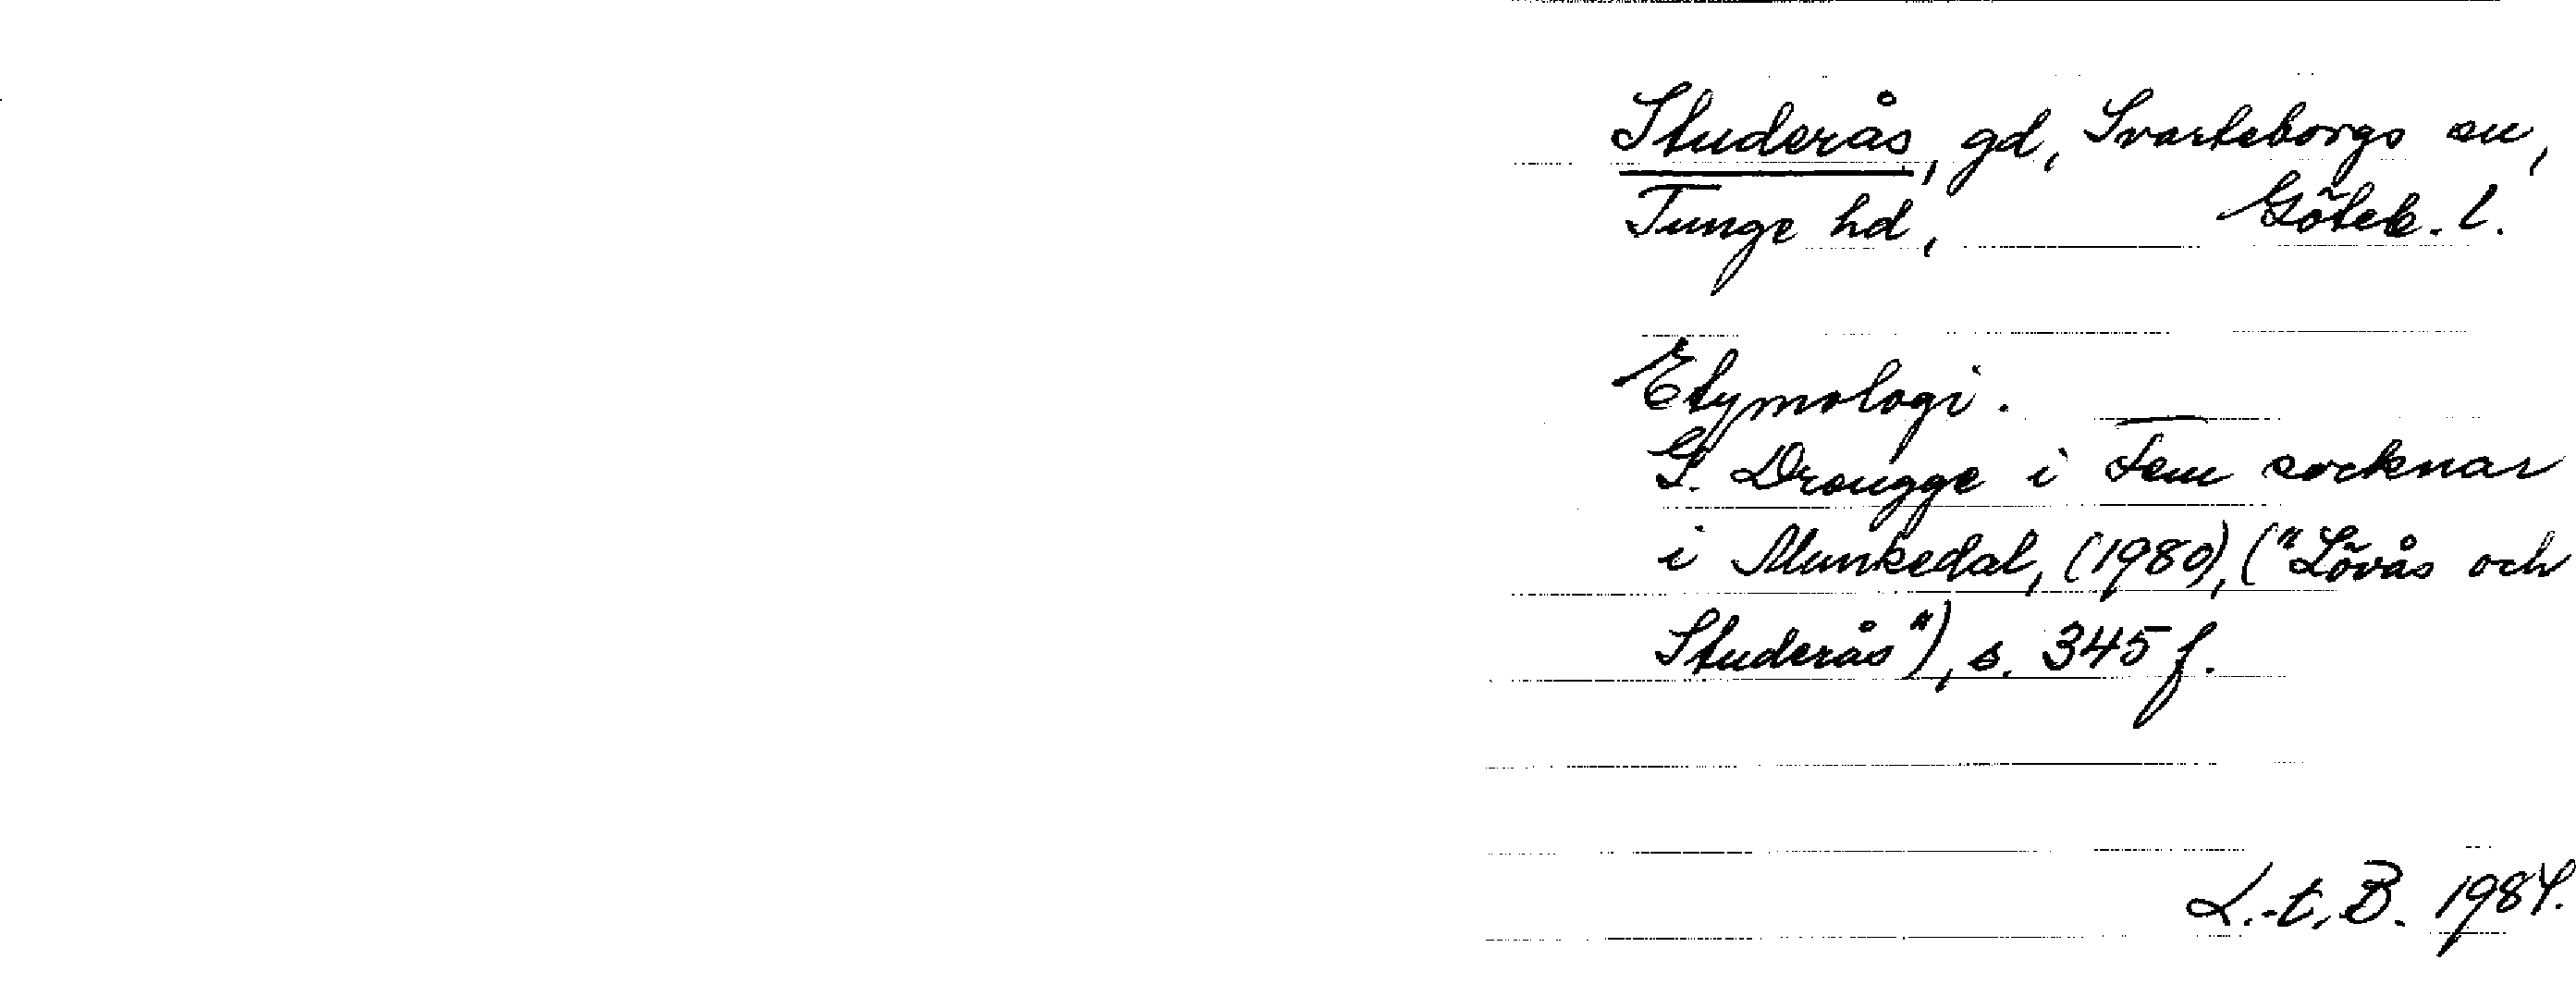 Studerås, gd, Svarteborgs sn,
Tunge hd, Göteb. l.
Etymologi.
G. Drougge i Fem socknar
i Munkedal, (1980), ("Lövås och
Studerås"), s. 345 f.
L.-t. B. 1984.